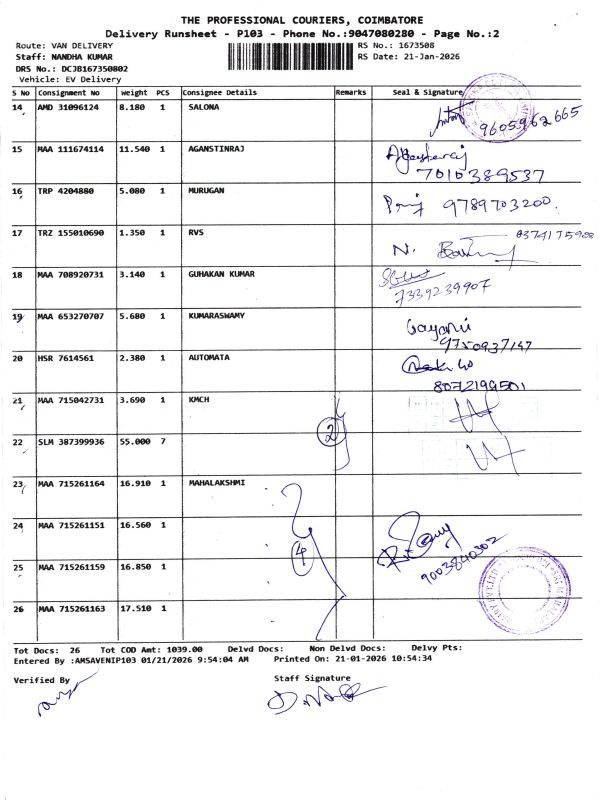 THE PROFESSIONAL COURIERS, COIMBATORE
Delivery Runsheet - P103 - Phone No.:9047080280 - Page No.:2
Route: VAN DELIVERY RS No.: 1673508
Staff: NANDHA KUMAR RS Date: 21-Jan-2026
DRS No.: DCJB167350802
Vehicle: EV Delivery
S No Consignment No Weight PCS Consignee Details Remarks Seal & Signature
14 AMD 31096124 8.180 1 SALONA
9605962665
15 MAA 111674114 11.540 1 AGANSTINRAJ
7010389537
16 TRP 4204880 5.080 1 MURUGAN 9789703200.
17 TRZ 155010690 1.350 1 RVS
N.
18 MAA 708920731 3.140 1 GUHAKAN KUMAR
7339239907
19 MAA 653270707 5.680 1 KUMARASWAMY
9750937147
20 HSR 7614561 2.380 1 AUTOMATA
8072199501
21 MAA 715042731 3.690 1 KMCH
2
22 SLM 387399936 55.000 7
23 MAA 715261164 16.910 1 MAHALAKSHMI
24 MAA 715261151 16.560 1
4
9003840302
25 MAA 715261159 16.850 1
26 MAA 715261163 17.510 1
Tot Docs: 26 Tot COD Amt: 1039.00 Delvd Docs: Non Delvd Docs: Delvy Pts:
Entered By :AMSAVENIP103 01/21/2026 9:54:04 AM Printed On: 21-01-2026 10:54:34
Verified By Staff Signature